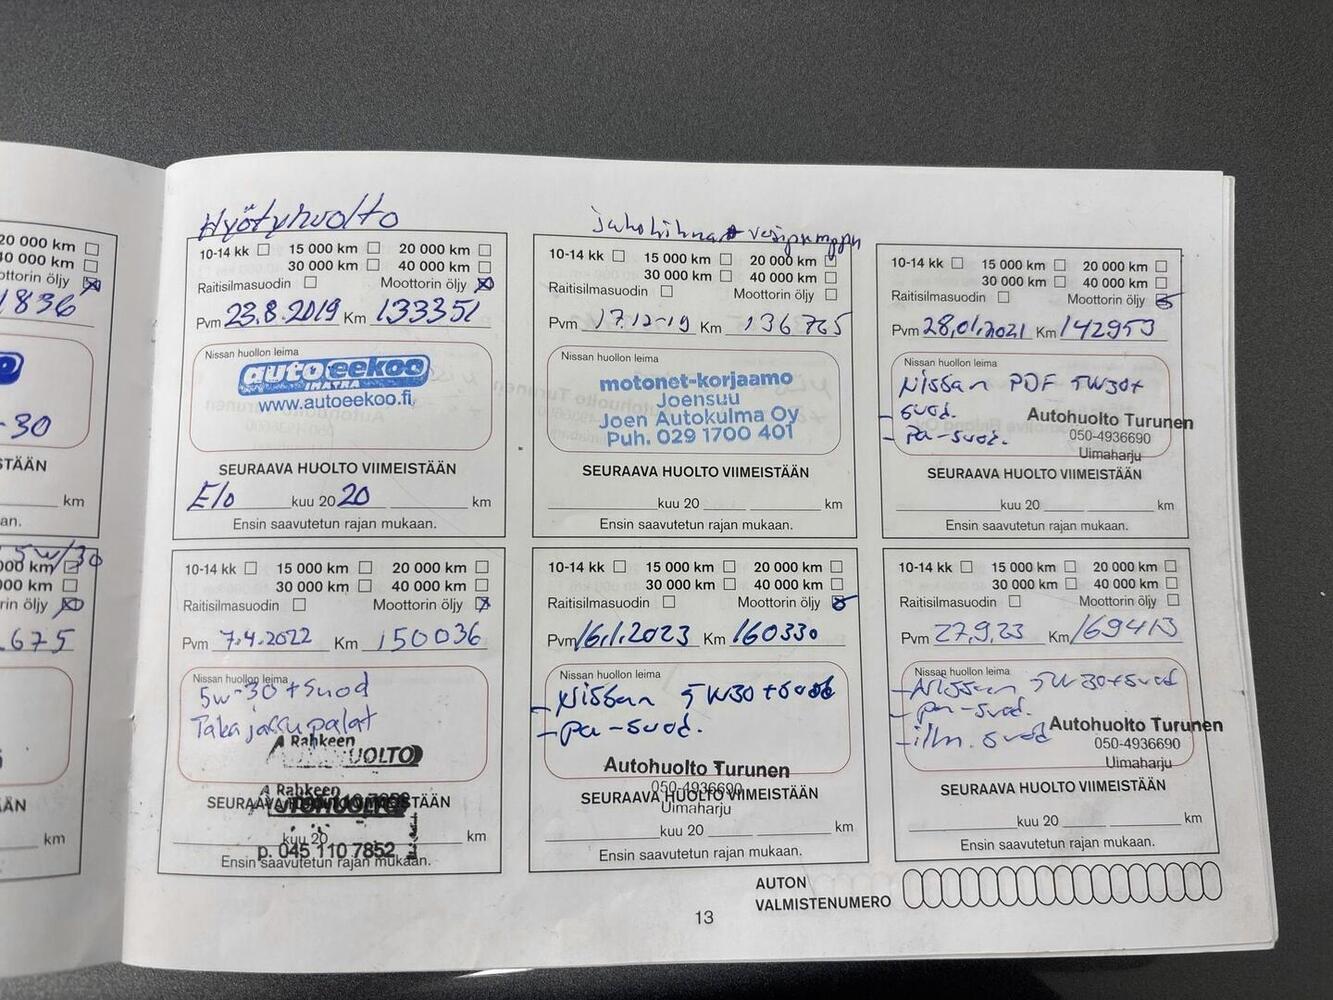 20 000 km
40 000 km
Moottorin öljy
1836
-30
km
5w/30
000 km
000 km
Moottorin öljy
.675
km
Hyötyhuolto
10-14 kk 15 000 km 20 000 km
30 000 km 40 000 km
Raitisilmasuodin Moottorin öljy
Pvm 23.8.2019 Km 133351
Nissan huollon leima
autoeekoo
IMATRA
www.autoeekoo.fi
SEURAAVA HUOLTO VIIMEISTÄÄN
Elo kuu 20 20 km
Ensin saavutetun rajan mukaan.
jakohihna + vesipumppu
10-14 kk 15 000 km 20 000 km
30 000 km 40 000 km
Raitisilmasuodin Moottorin öljy
Pvm 17.12-19 Km 136765
Nissan huollon leima
motonet-korjaamo
Joensuu
Joen Autokulma Oy
Puh. 029 1700 401
SEURAAVA HUOLTO VIIMEISTÄÄN
kuu 20 km
Ensin saavutetun rajan mukaan.
10-14 kk 15 000 km 20 000 km
30 000 km 40 000 km
Raitisilmasuodin Moottorin öljy
Pvm 28,01,2021 Km 142953
Nissan huollon leima
Nissan PDF 5W30+
- suod.
- Pa-suod.
Autohuolto Turunen
050-4936690
Uimaharju
SEURAAVA HUOLTO VIIMEISTÄÄN
kuu 20 km
Ensin saavutetun rajan mukaan.
10-14 kk 15 000 km 20 000 km
30 000 km 40 000 km
Raitisilmasuodin Moottorin öljy
Pvm 7.4.2022 Km 150036
Nissan huollon leima
5w-30 + suod
Taka jarrupalat
A Rahkeen
HUOLTO
A Rahkeen
AUTOHUOLTO
SEURAAVA HUOLTO VIIMEISTÄÄN
kuu 20 km
p. 045 110 7852
Ensin saavutetun rajan mukaan.
10-14 kk 15 000 km 20 000 km
30 000 km 40 000 km
Raitisilmasuodin Moottorin öljy
Pvm 16.1.2023 Km 160330
Nissan huollon leima
- Nissan 5W30 + suod
- Pa-suod.
Autohuolto Turunen
050-4936690
Uimaharju
SEURAAVA HUOLTO VIIMEISTÄÄN
kuu 20 km
Ensin saavutetun rajan mukaan.
10-14 kk 15 000 km 20 000 km
30 000 km 40 000 km
Raitisilmasuodin Moottorin öljy
Pvm 27.9.23 Km 169413
Nissan huollon leima
- Nissan 5W30+suod
- pa-suod.
- ilm. suod
Autohuolto Turunen
050-4936690
Uimaharju
SEURAAVA HUOLTO VIIMEISTÄÄN
kuu 20 km
Ensin saavutetun rajan mukaan.
AUTON
VALMISTENUMERO
13